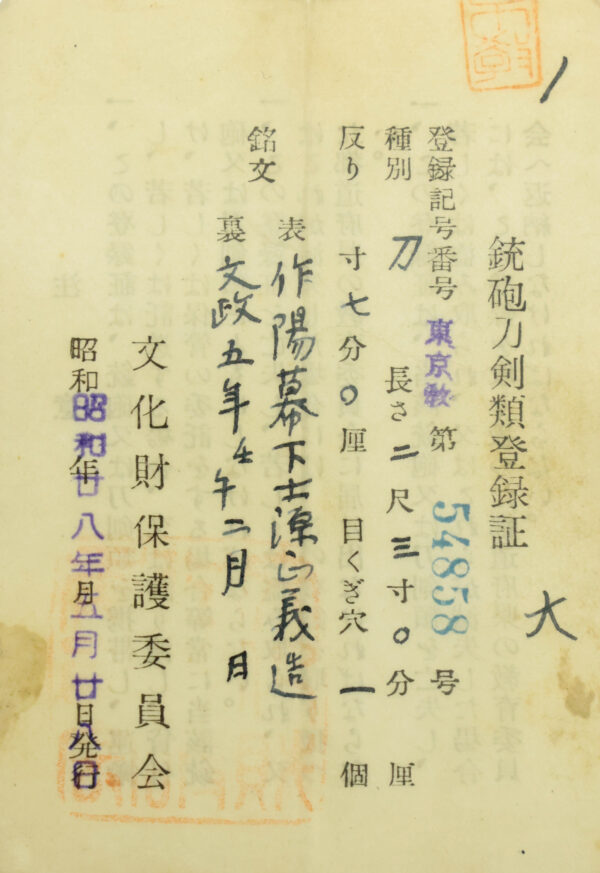 銃砲刀剣類登録証
大
登録記号番号 東京教 第 54858 号
種別 刀 長さ 二 尺 三 寸 〇 分 厘
反り 寸 七 分 〇 厘 目くぎ穴 一 個
銘文 表 作陽幕下士源正義造
裏 文政五年壬午二月 日
文化財保護委員会
昭和 昭和廿八年五月廿八日 年 月 日発行